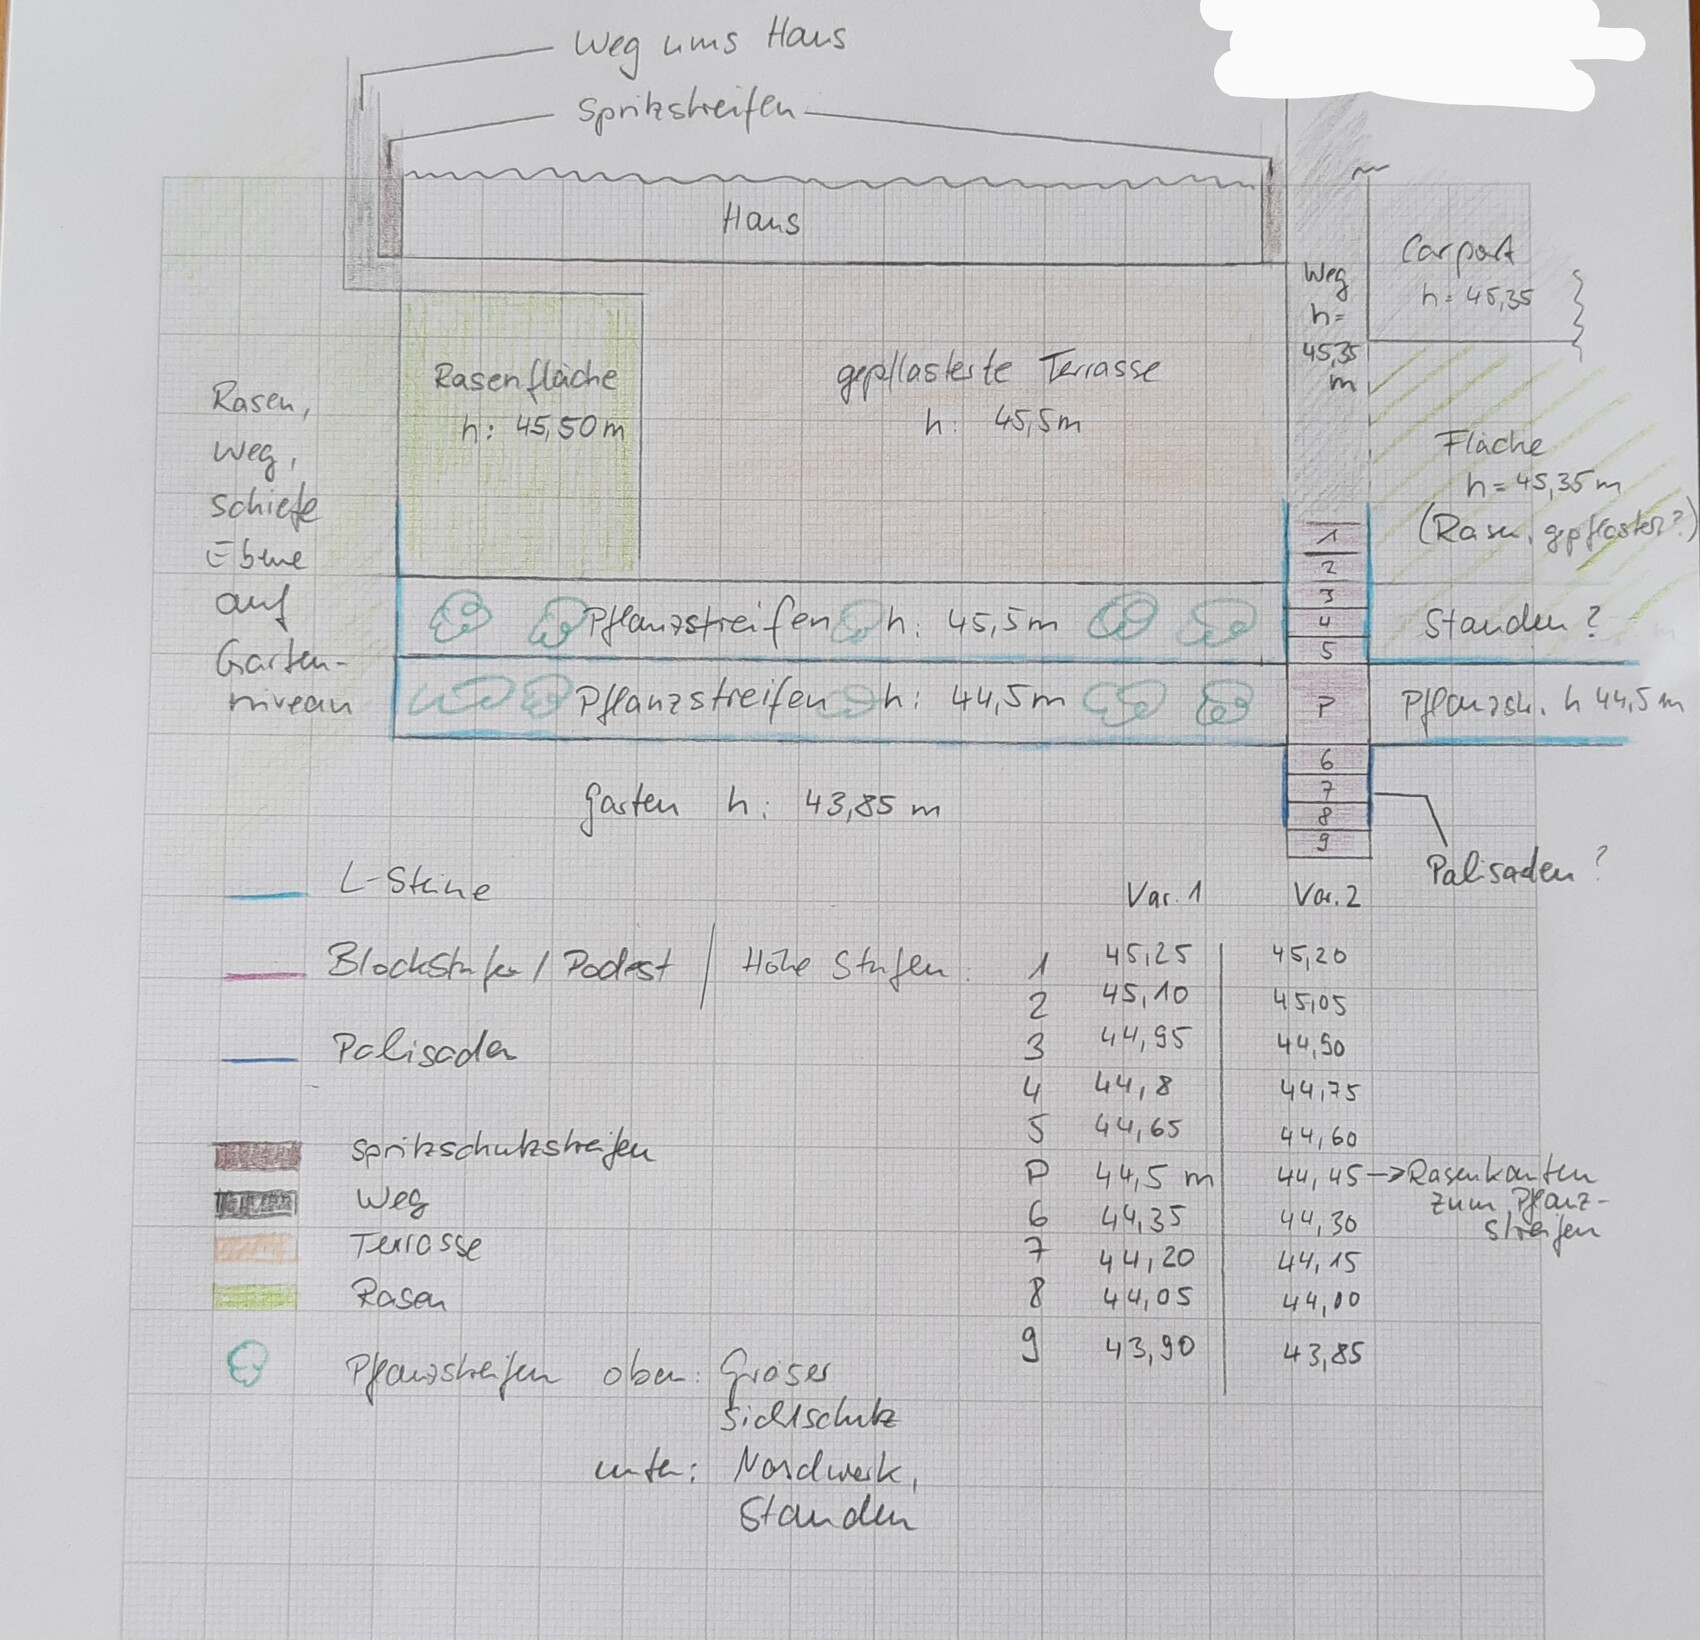 Weg ums Haus
Spritzstreifen
Haus
Carport
h = 45,35
Weg
h =
45,35
m
Rasenfläche
h: 45,50 m
gepflasterte Terrasse
h: 45,5m
Rasen,
Weg,
Schiefe
Ebene
auf
Garten-
niveau
Fläche
h = 45,35 m
(Rasen, gepflastert?)
1
2
3
4
5
Pflanzstreifen h: 45,5m
Stauden ?
Pflanzstreifen h: 44,5m
P
Pflanzstr. h 44,5 m
6
7
8
9
Garten h: 43,85 m
Palisaden ?
L-Steine
Blockstufen / Podest
Palisaden
Höhe Stufen:
Var. 1 Var. 2
1 45,25 45,20
2 45,10 45,05
3 44,95 44,90
4 44,8 44,75
5 44,65 44,60
P 44,5 m 44,45 -> Rasenkanten
zum Pflanz-
streifen
6 44,35 44,30
7 44,20 44,15
8 44,05 44,00
9 43,90 43,85
Spritzschutzstreifen
Weg
Terrasse
Rasen
Pflanzstreifen oben: Gräser
Sichtschutz
unten: Naschwerk,
Stauden